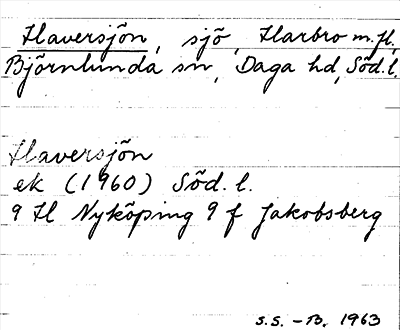 Haversjön, sjö, Harbro m.fl.,
Björnlunda sn, Daga hd, Söd.l.
Haversjön
ek (1960) Söd.l.
9 H Nyköping 9 f Jakobsberg
S.S. -B. 1963